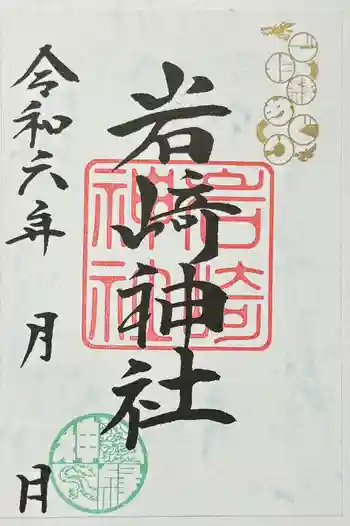 岩崎神社
令和六年 月 日
岩崎
神社